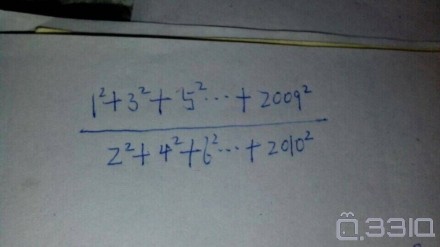 1²+3²+5²…+2009²
2²+4²+6²…+2010²